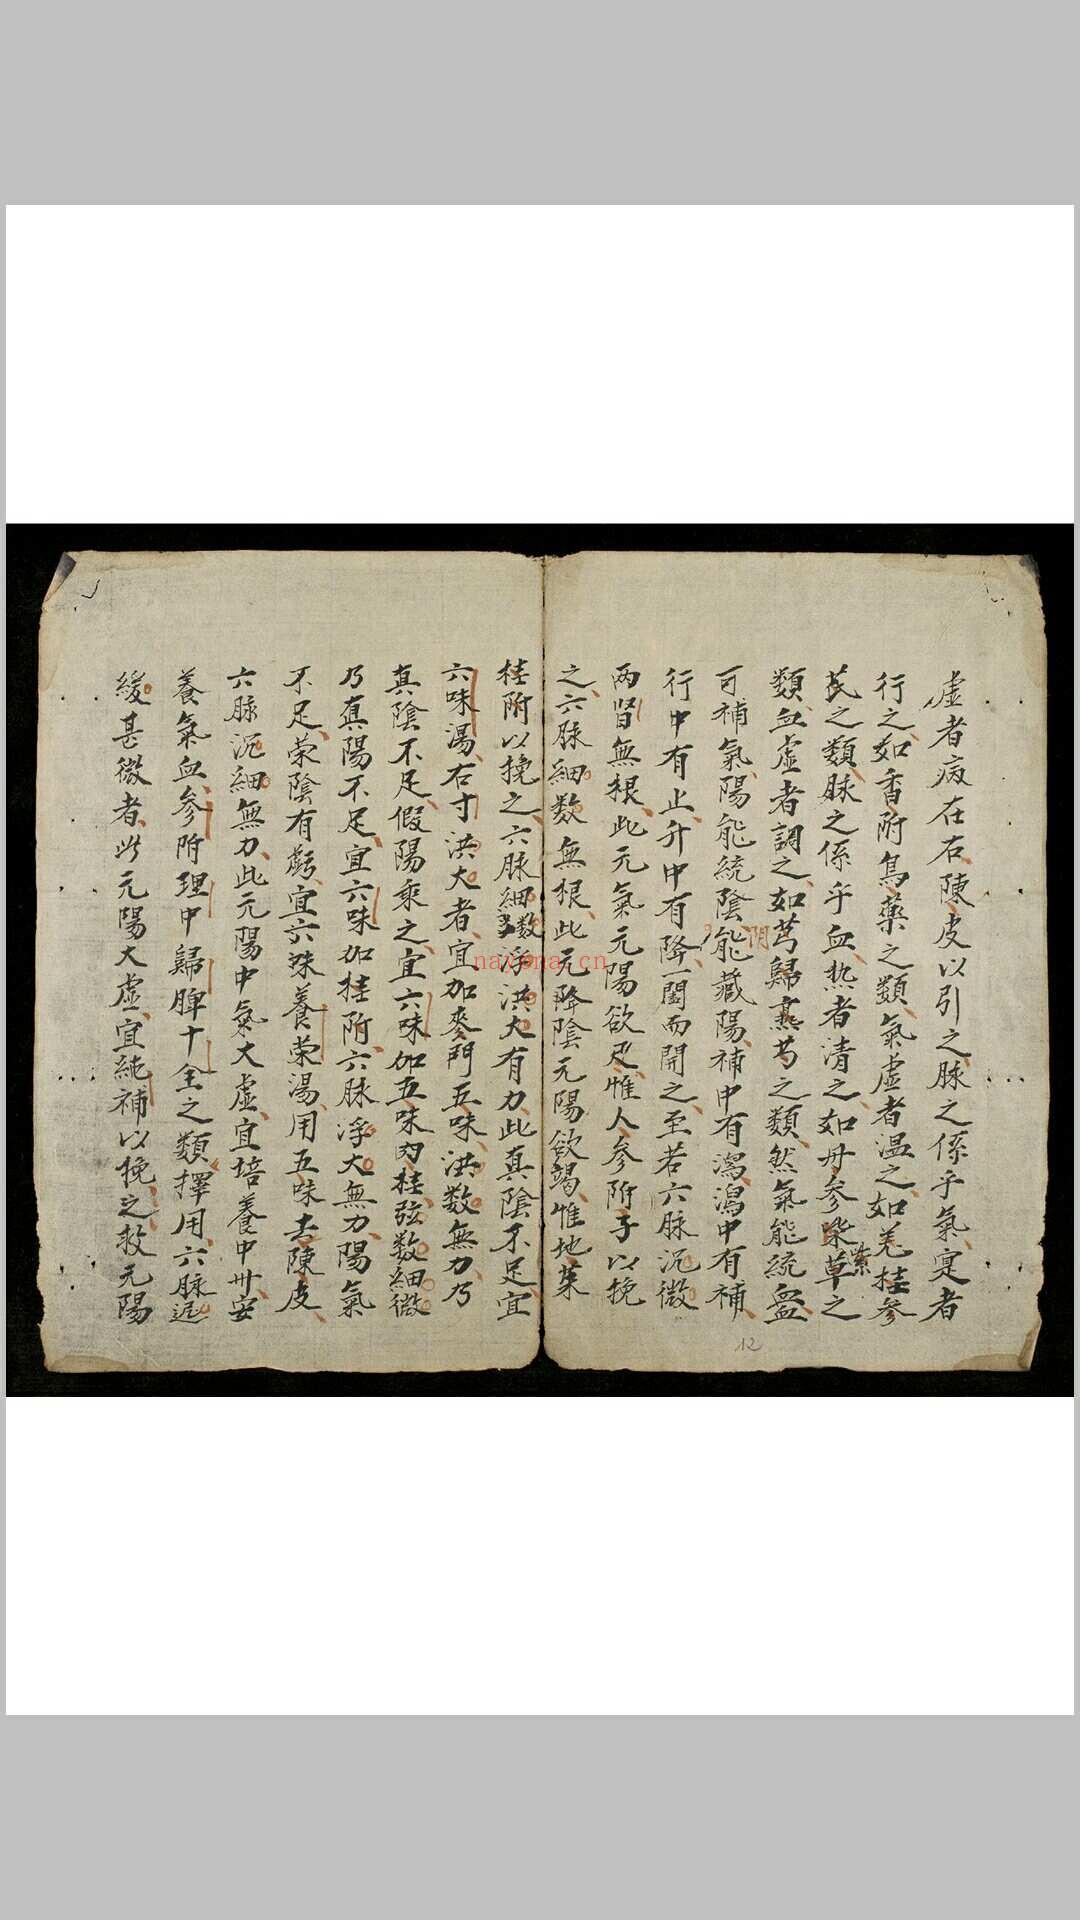 虚者病在右陳皮以引之脉之係乎氣寔者
行之如香附烏藥之類氣虚者温之如羌桂參
芪之類脉之係乎血热者清之如丹參柒草之
紫
類血虚者調之如芎歸熟芍之類然氣能統盌
可補氣陽能統陰能藏陽補中有瀉瀉中有補
行中有止升中有降一闔而開之至若六脉沉微
两腎無根此元氣元陽欲尽惟人參附子以挽
之六脉細数無根此元降陰元陽欲竭惟地茱
桂附以挽之六脉細数浮洪大有力此真陰不足宜
六味湯右寸洪大者宜加麥門五味洪数無力乃
真陰不足假陽乘之宜六味加五味肉桂弦数細微
乃真陽不足宜六味加桂附六脉浮大無力陽氣
不足荣陰有虧宜六味養荣湯用五味去陳皮
六脉沉細無力此元陽中氣大虚宜培養中州安
養氣血參附理中歸脾十全之類擇用六脉遲
緩甚微者此元陽大虚宜純補以挽之救元陽
12
nayona.cn